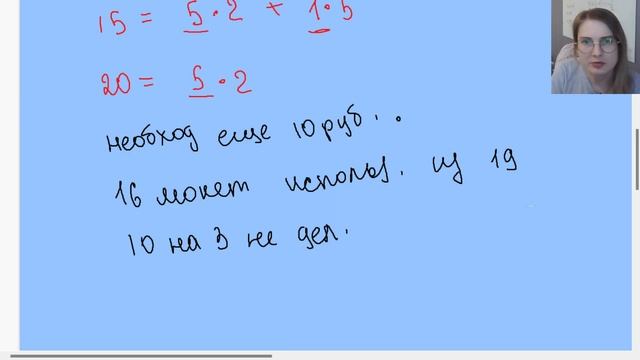 15 = 5·2 + 1·5
20 = 5·2
необход еще 10 руб.
16 монет использ. из 19
10 на 3 не дел.